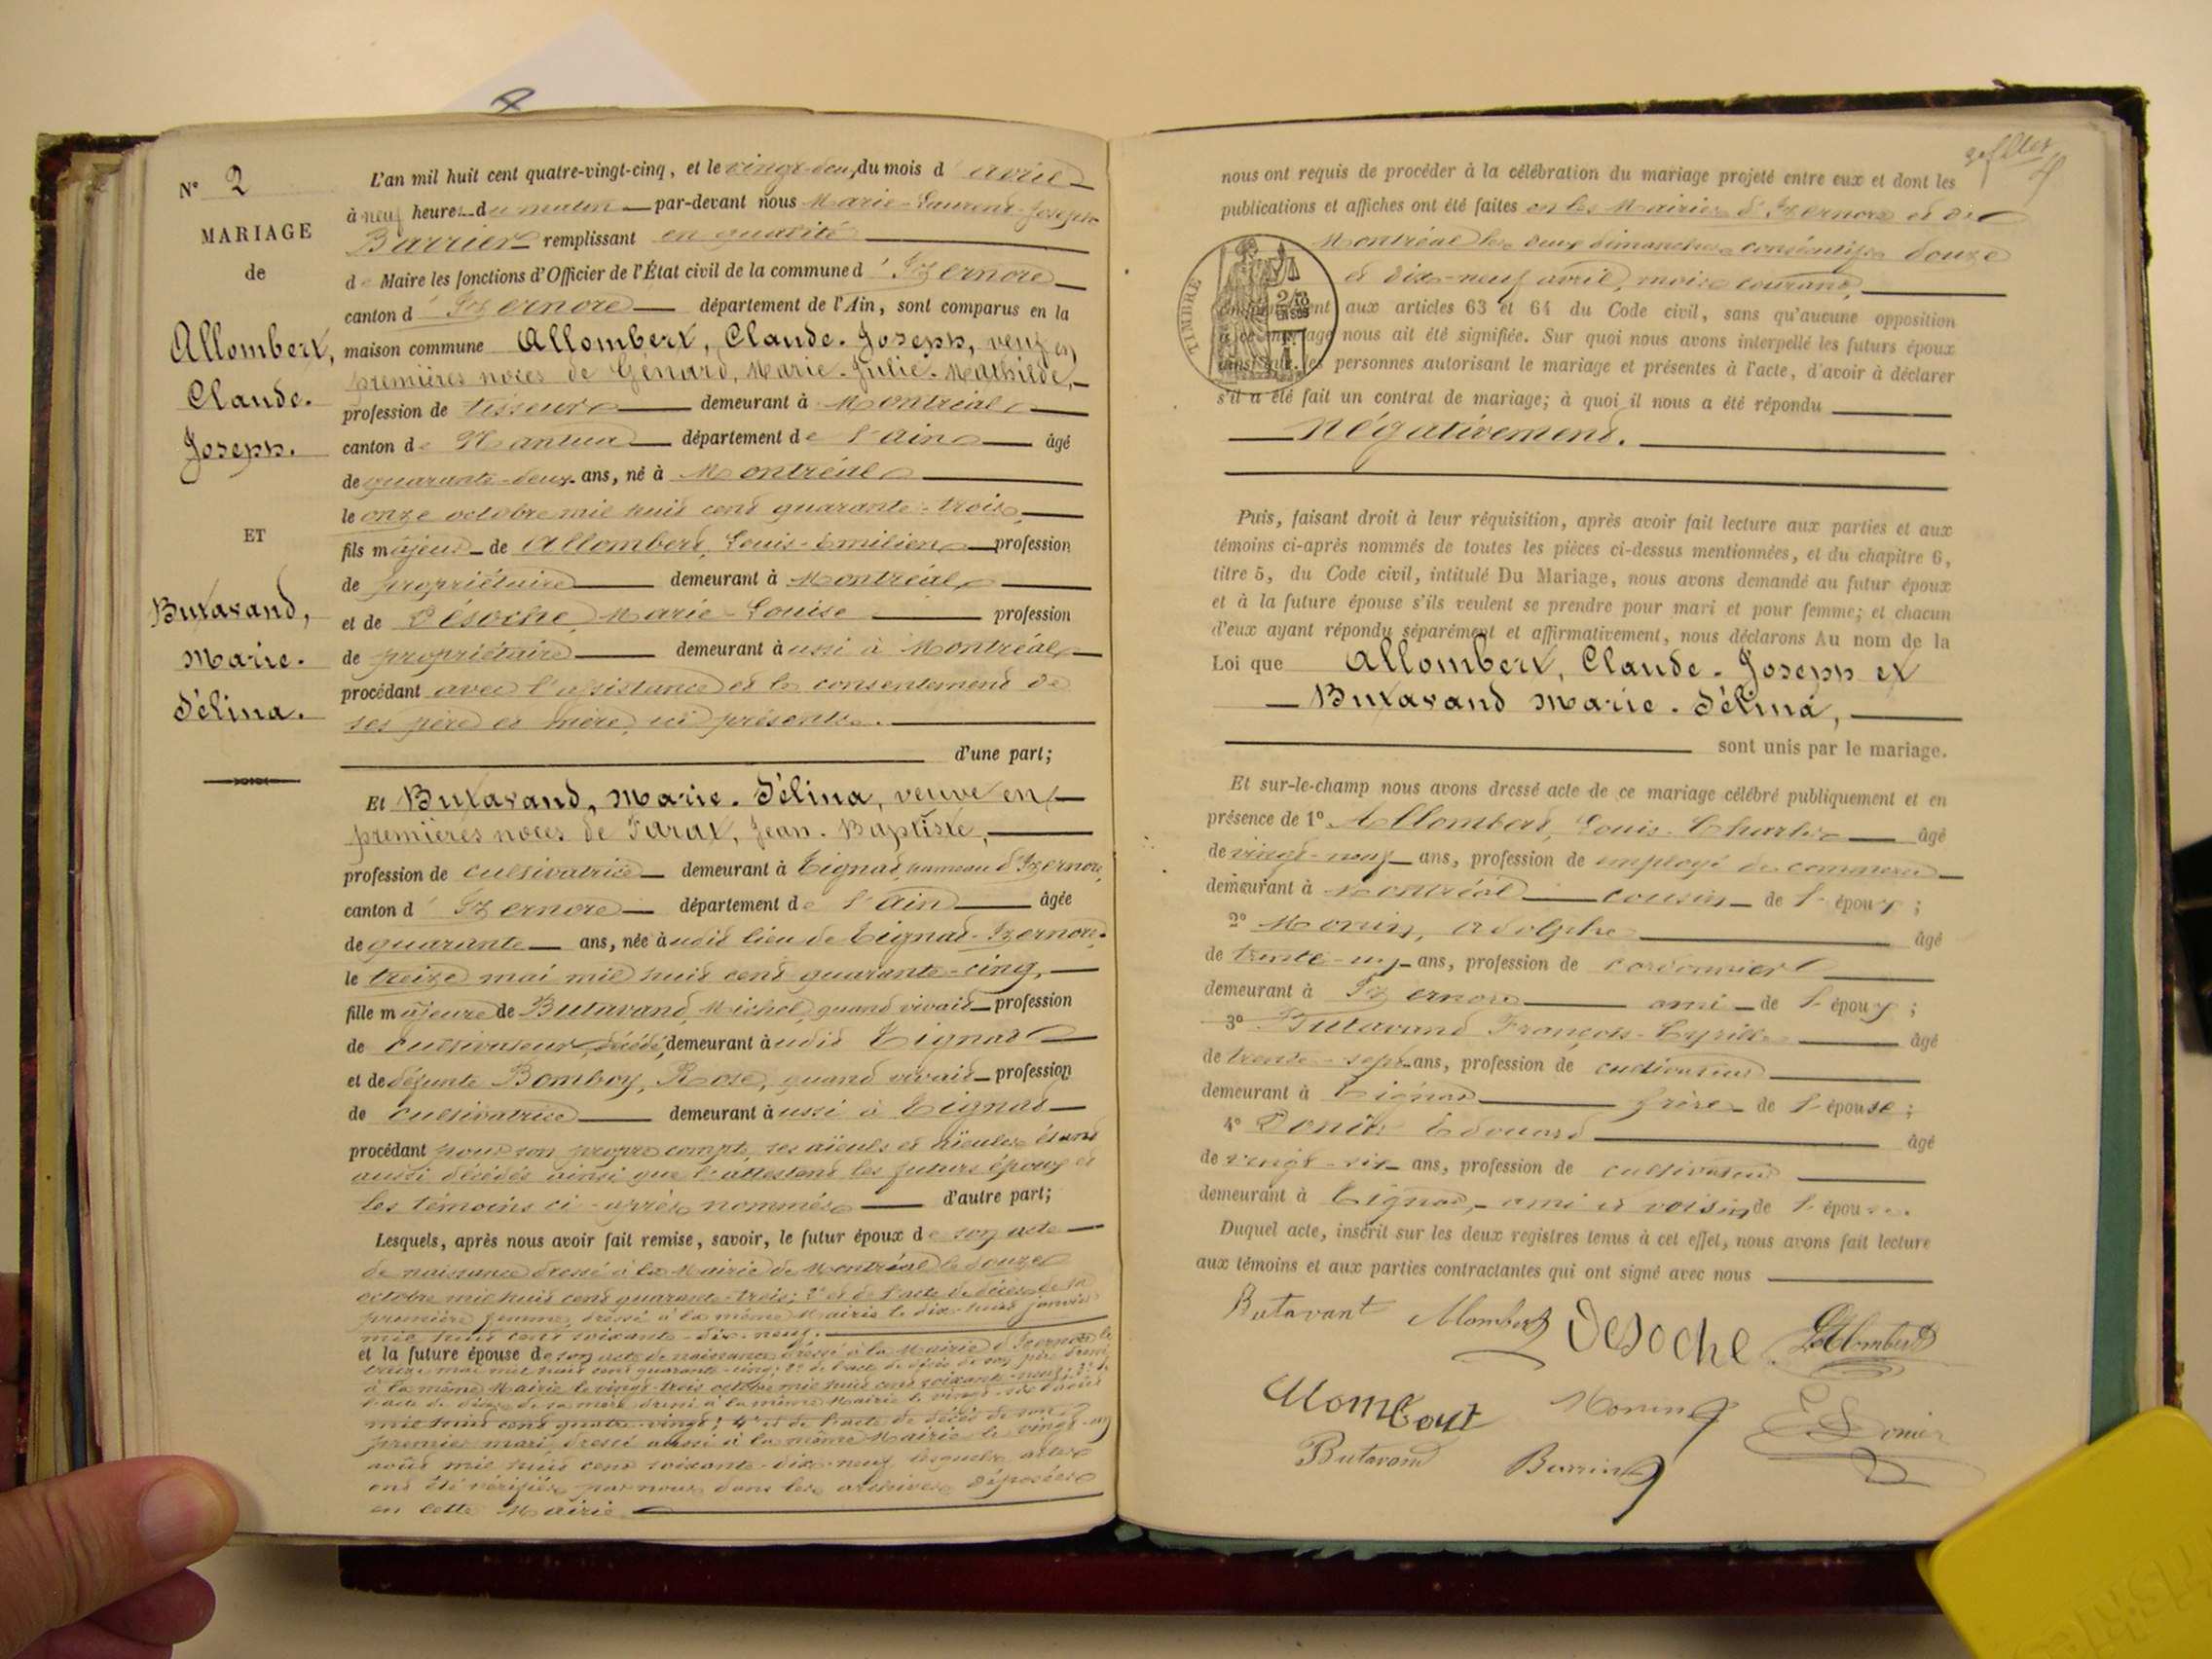 N° 2
MARIAGE
de
Allombert,
Claude.
Joseph.
ET
Butavand,
Marie.
Célina.
L'an mil huit cent quatre-vingt-cinq, et le vingt-deux du mois d'avril
à neuf heures du matin par-devant nous Marie-Laurent-Joseph
Barrier remplissant en qualité
de Maire les fonctions d'Officier de l'État civil de la commune d'Izernore
canton d'Izernore département de l'Ain, sont comparus en la
maison commune Allombert, Claude-Joseph, veuf en
premières noces de Génard, Marie-Julie-Mathilde,
profession de tisseur demeurant à Montréal
canton de Nantua département de l'Ain âgé
de quarante-deux ans, né à Montréal
le onze octobre mil huit cent quarante-trois,
fils majeur de Allombert, Louis-Emilien profession
de propriétaire demeurant à Montréal
et de Désoche Marie-Louise profession
de propriétaire demeurant aussi à Montréal
procédant avec l'assistance et le consentement de
ses père et mère, ici présents.
d'une part;
Et Butavand, Marie-Célina, veuve en
premières noces de Jean-Baptiste,
profession de cultivatrice demeurant à Tignat, hameau d'Izernore
canton d'Izernore département de l'Ain âgée
de quarante ans, née audit lieu de Tignat-Izernore
le treize mai mil huit cent quarante-cinq,
fille majeure de Butavand, Michel, quand vivait profession
de cultivateur, décédé, demeurant audit Tignat
et de défunte Bomboy, Rose, quand vivait profession
de cultivatrice demeurant aussi à Tignat
procédant pour son propre compte, ses aïeuls et aïeules étant
aussi décédés ainsi que l'attestent les futurs époux et
les témoins ci-après nommés d'autre part;
Lesquels, après nous avoir fait remise, savoir, le futur époux de son acte
de naissance dressé à la Mairie de Montréal le douze
octobre mil huit cent quarante-trois; 2° et de l'acte de décès de sa
première femme, dressé à la même Mairie le dix-huit janvier
mil huit cent soixante-dix-neuf.
et la future épouse de son acte de naissance dressé à la Mairie d'Izernore le
treize mai mil huit cent quarante-cinq; 2° de l'acte de décès de son père dressé
à la même Mairie le vingt-trois octobre mil huit cent soixante-neuf; 3° de
l'acte de décès de sa mère dressé à la même Mairie le vingt-six
mil huit cent quatre-vingt; 4° et de l'acte de décès de son
premier mari dressé aussi à la même Mairie le vingt-un
août mil huit cent soixante-dix-neuf, lesquels actes
ont été vérifiés par nous dans les archives déposées
en cette Mairie
nous ont requis de procéder à la célébration du mariage projeté entre eux et dont les
publications et affiches ont été faites en les Mairies d'Izernore et de
Montréal les deux dimanches consécutifs douze
et dix-neuf avril, mois courant,
TIMBRE
conformément aux articles 63 et 64 du Code civil, sans qu'aucune opposition
à ce mariage nous ait été signifiée. Sur quoi nous avons interpellé les futurs époux
ainsi que les personnes autorisant le mariage et présentes à l'acte, d'avoir à déclarer
s'il a été fait un contrat de mariage; à quoi il nous a été répondu
Négativement.
Puis, faisant droit à leur réquisition, après avoir fait lecture aux parties et aux
témoins ci-après nommés de toutes les pièces ci-dessus mentionnées, et du chapitre 6,
titre 5, du Code civil, intitulé Du Mariage, nous avons demandé au futur époux
et à la future épouse s'ils veulent se prendre pour mari et pour femme; et chacun
d'eux ayant répondu séparément et affirmativement, nous déclarons Au nom de la
Loi que Allombert, Claude-Joseph et
Butavand Marie-Célina,
sont unis par le mariage.
Et sur-le-champ nous avons dressé acte de ce mariage célébré publiquement et en
présence de 1° Allombert, Louis-Charles âgé
de vingt-neuf ans, profession de employé de commerce
demeurant à Montréal cousin de l'époux;
2° Monin, Adolphe âgé
de trente-un ans, profession de cordonnier
demeurant à Izernore ami de l'époux;
3° Butavand François-Cyrille âgé
de trente-sept ans, profession de cultivateur
demeurant à Tignat frère de l'épouse;
4° Edouard âgé
de vingt-six ans, profession de cultivateur
demeurant à Tignat, ami et voisin de l'épouse.
Duquel acte, inscrit sur les deux registres tenus à cet effet, nous avons fait lecture
aux témoins et aux parties contractantes qui ont signé avec nous
Butavant Allombert Desoche Allombert
Allombert Monin
Butavand Barrier